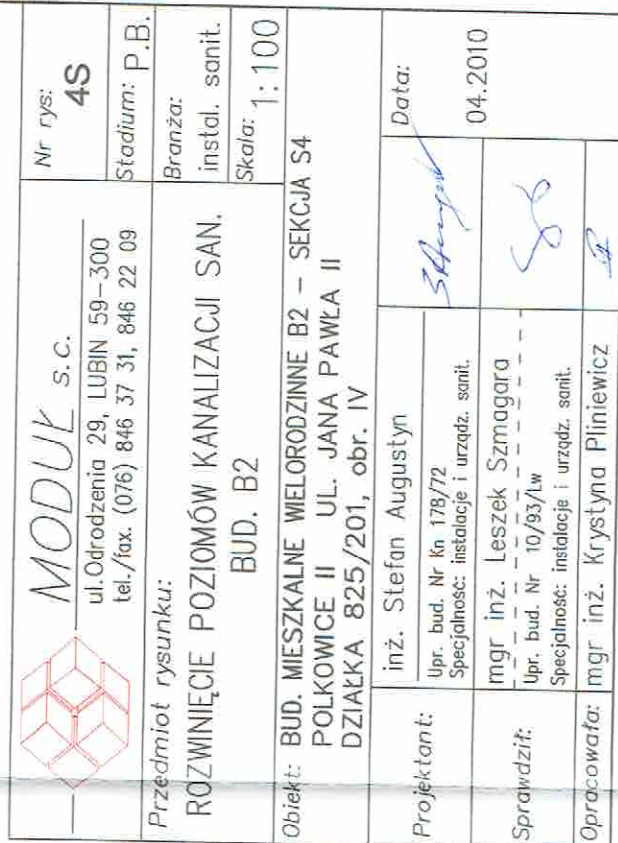 MODUŁ s.c.
ul.Odrodzenia 29, LUBIN 59-300
tel./fax. (076) 846 37 31, 846 22 09
Nr rys:
4S
Stadium: P.B.
Przedmiot rysunku:
ROZWINIĘCIE POZIOMÓW KANALIZACJI SAN.
BUD. B2
Branża:
instal. sanit.
Skala: 1:100
Obiekt: BUD. MIESZKALNE WELORODZINNE B2 – SEKCJA S4
POLKOWICE II UL. JANA PAWŁA II
DZIAŁKA 825/201, obr. IV
Projektant:
inż. Stefan Augustyn
Upr. bud. Nr Kn 178/72
Specjalność: instalacje i urządz. sanit.
Data:
04.2010
Sprawdził:
mgr inż. Leszek Szmagara
Upr. bud. Nr 10/93/Lw
Specjalność: instalacje i urządz. sanit.
Opracowała: mgr inż. Krystyna Pliniewicz